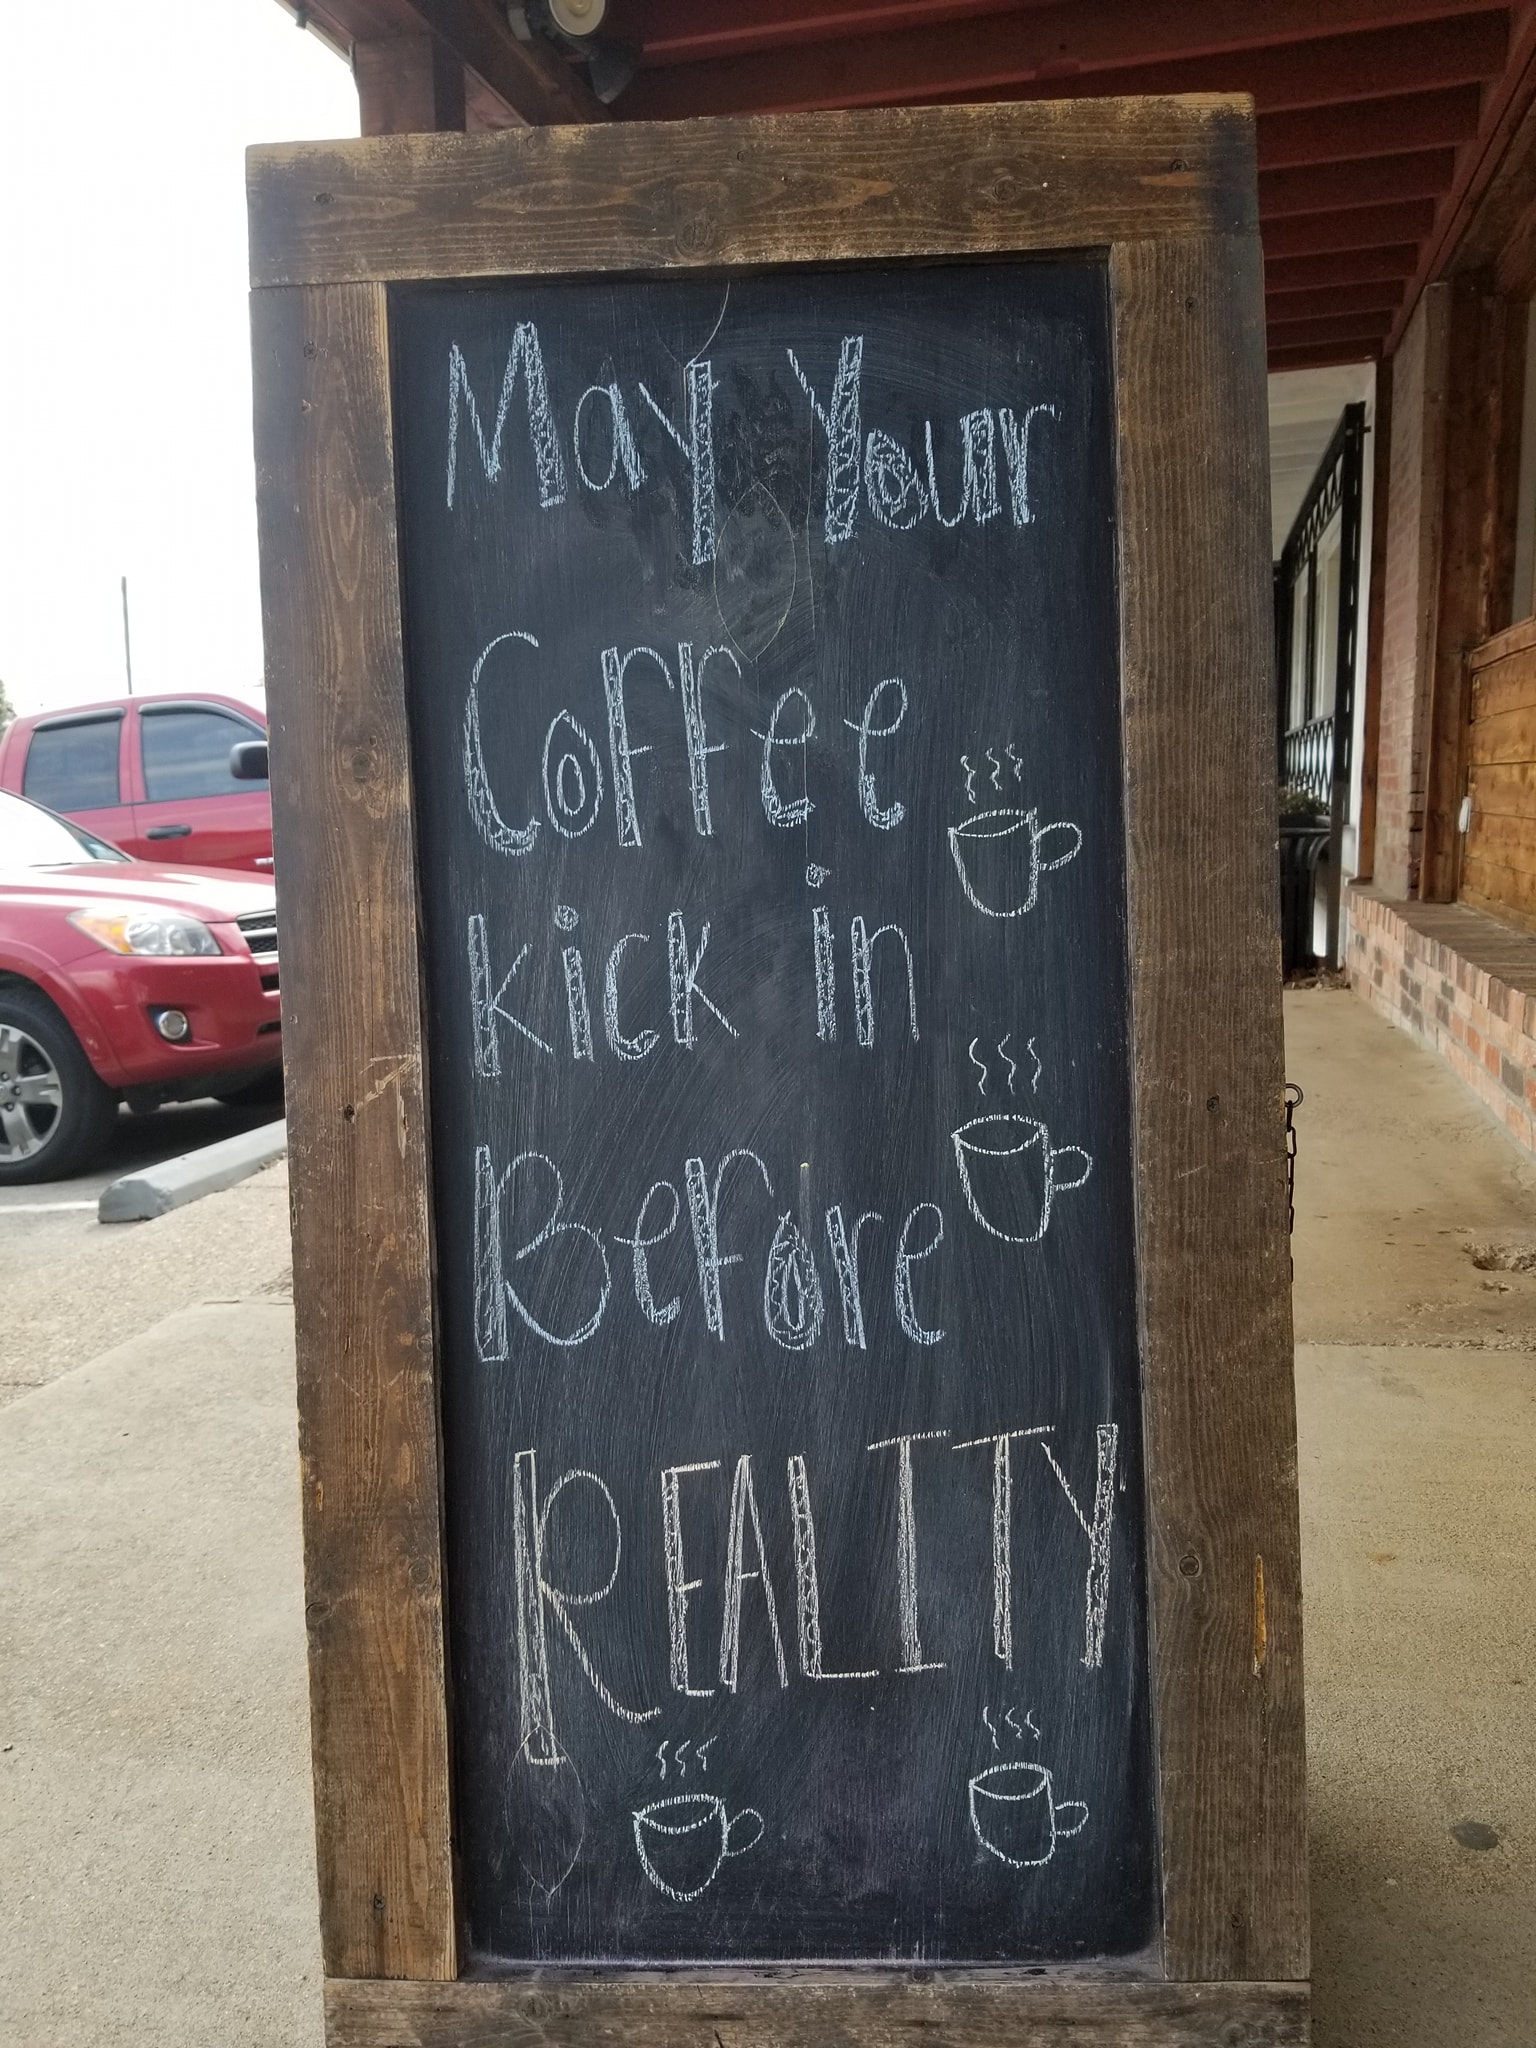 May Your
Coffee
kick in
Before
REALITY